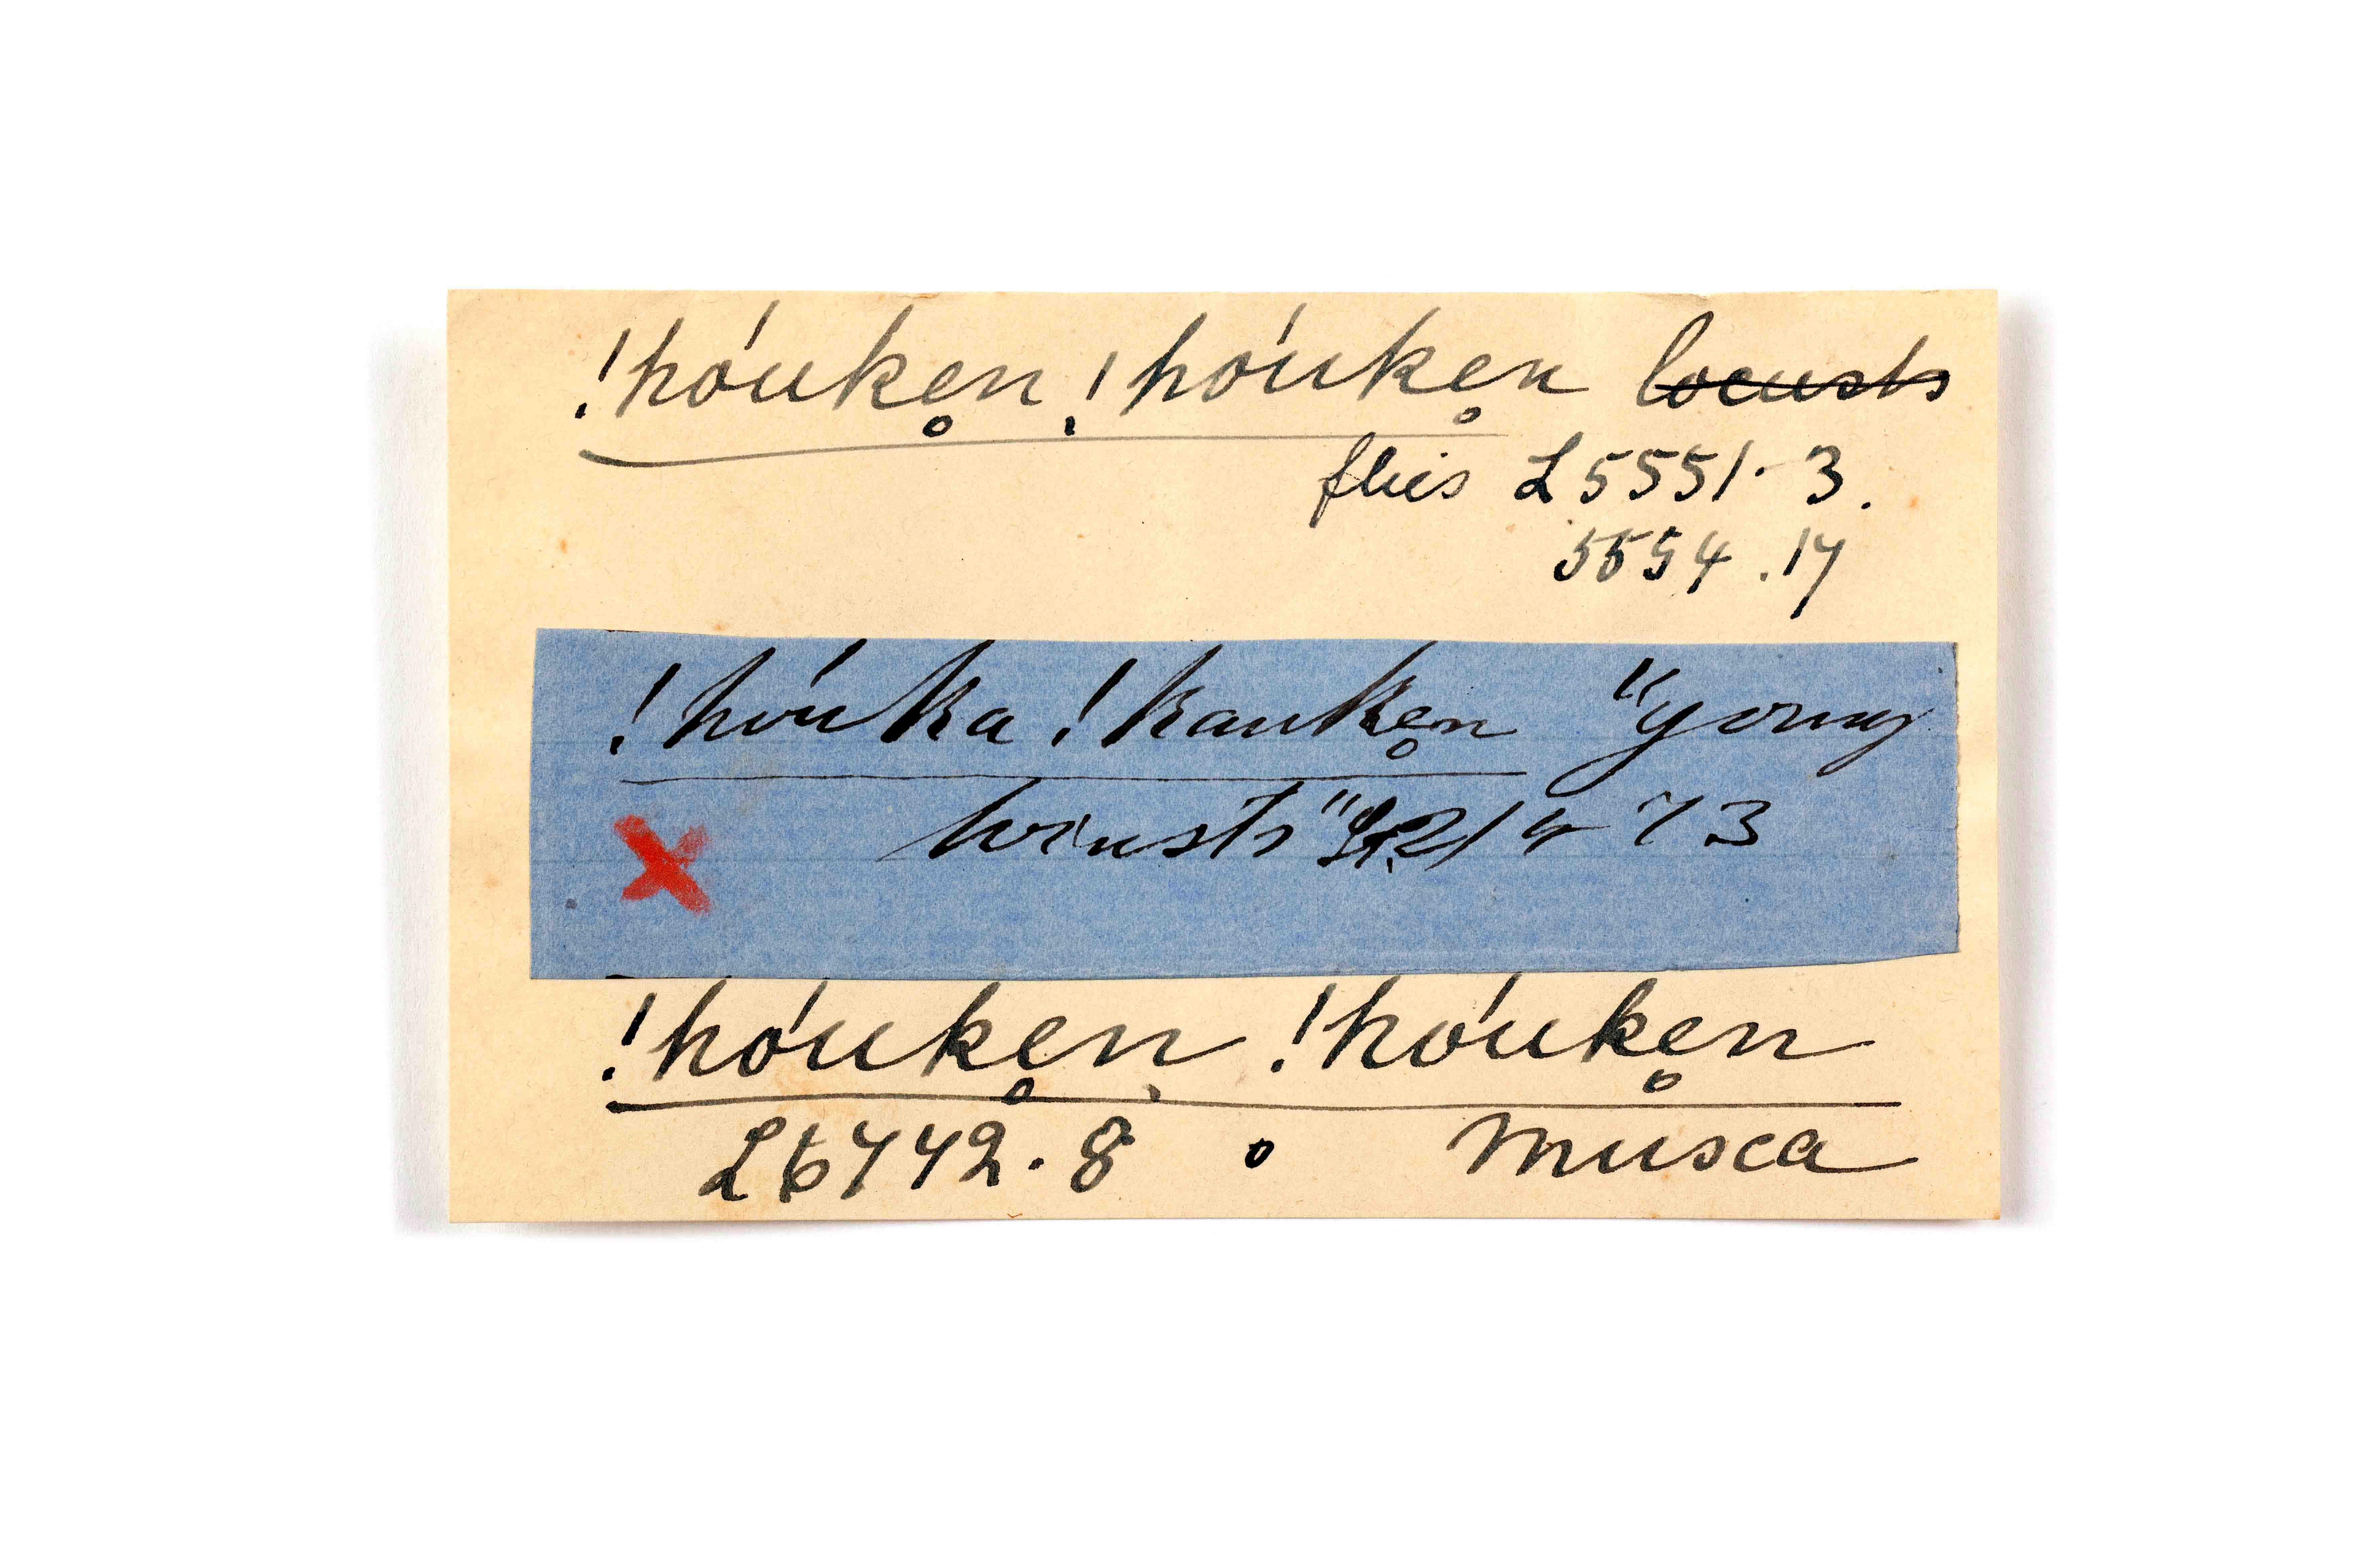 !hóuken̥ !hóuken̥ ~~locusts~~
flies L 5551-3.
5554.17
!hóuka !kauken̥ "young
locusts" 21/4 73
!hóuken̥ !hóuken̥
L6742.8 musca